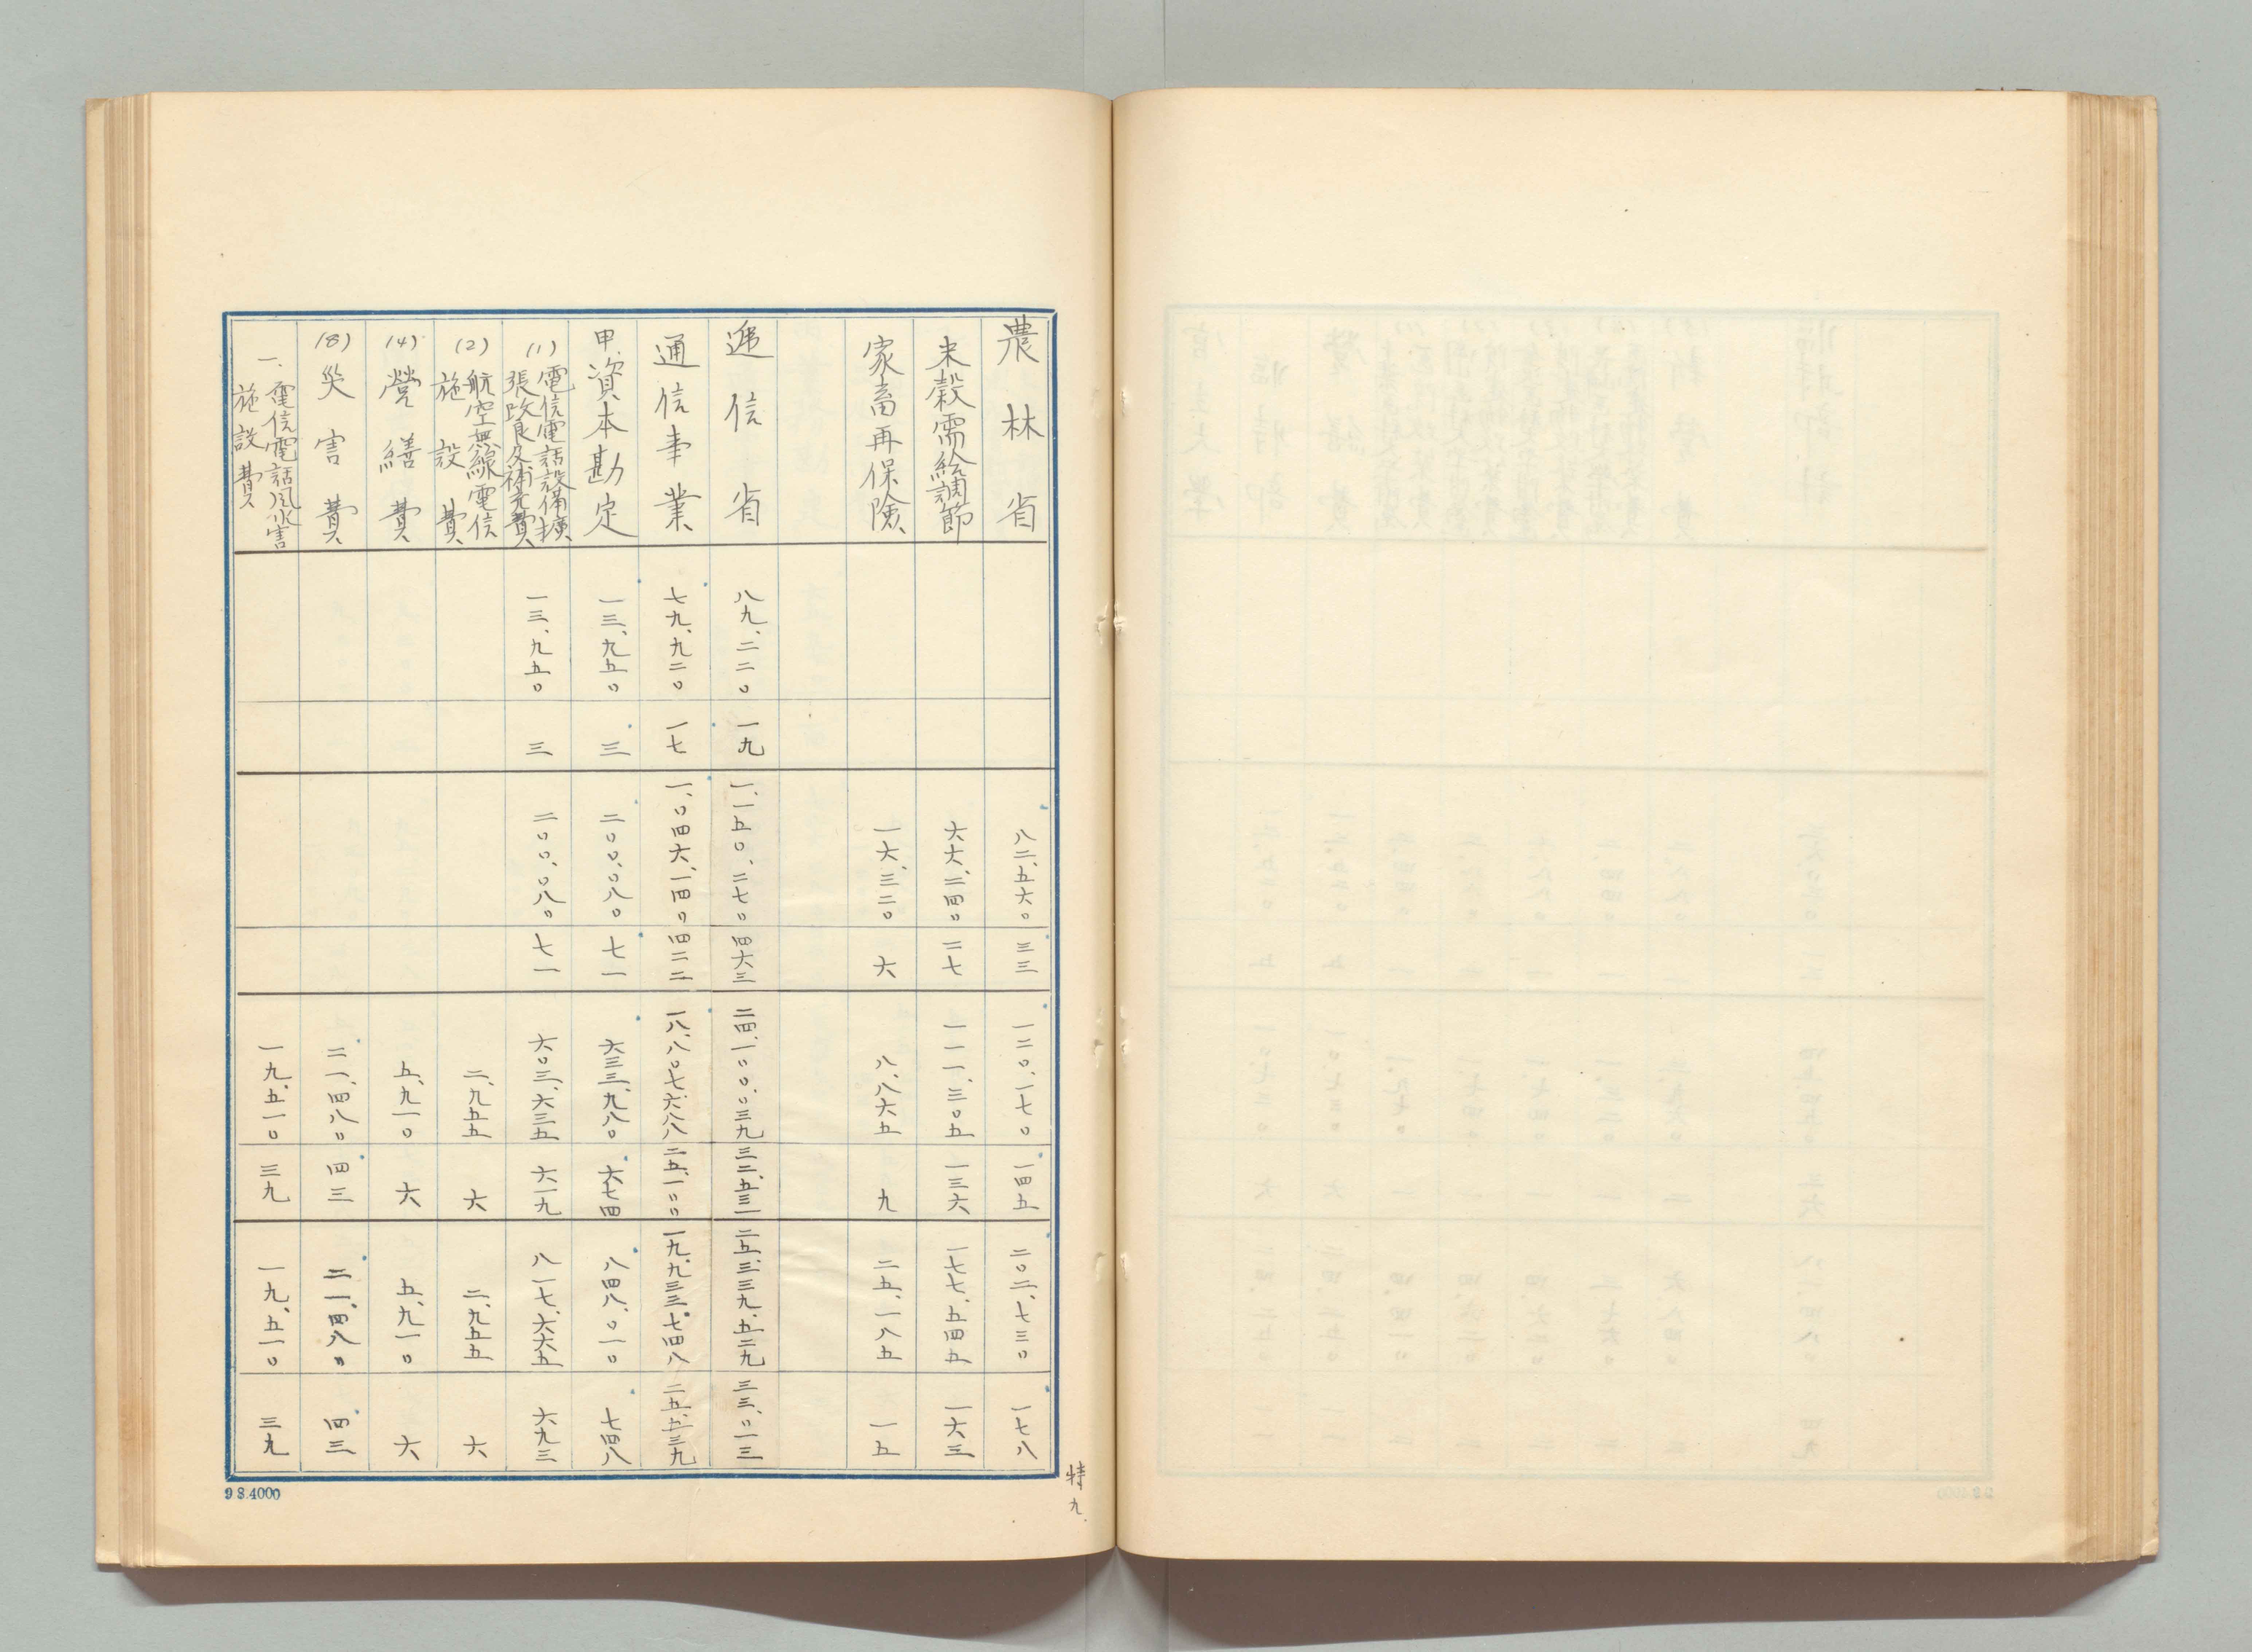 農林省 八二、五六〇 三三 一二〇、一七〇 一四五 二〇二、七三〇 一七八
米穀需給調節 六六、二四〇 二七 一一一、三〇五 一三六 一七七、五四五 一六三
家畜再保険 一六、三二〇 六 八、八六五 九 二五、一八五 一五
逓信省 八九、二二〇 一九 一、一五〇、二七〇 四六三 二四、一〇〇、〇三九 三二、五三一 二五、三三九、五二九 三三、〇一三
通信事業 七九、九二〇 一七 一、〇四六、一四〇 四二二 一八、八〇七、六八八 二五、一〇〇 一九、九三三、七四八 二五、五三九
甲、資本勘定 一三、九五〇 三 二〇〇、〇八〇 七一 六三三、九八〇 六七四 八四八、〇一〇 七四八
(1) 電信電話設備擴
張改良及補充費 一三、九五〇 三 二〇〇、〇八〇 七一 六〇三、六三五 六一九 八一七、六六五 六九三
(2) 航空無線電信
施設費 二、九五五 六 二、九五五 六
(4) 營繕費 五、九一〇 六 五、九一〇 六
(8) 災害費 二一、四八〇 四三 二一、四八〇 四三
一、電信電話風水害
施設費 一九、五一〇 三九 一九、五一〇 三九
特九
9.8.4000